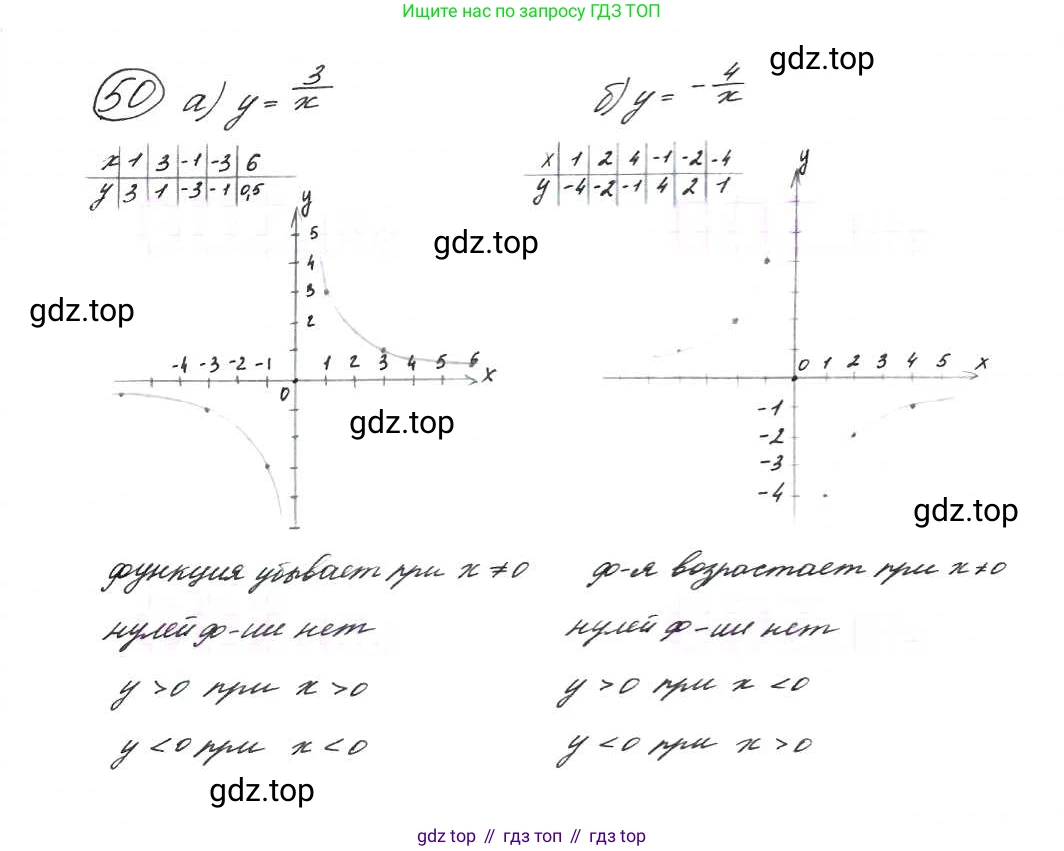 Ищите нас по запросу ГДЗ ТОП
gdz.top
50 а) y = 3/x
б) y = - 4/x
x 1 3 -1 -3 6
y 3 1 -3 -1 0,5
x 1 2 4 -1 -2 -4
y -4 -2 -1 4 2 1
y
y
5
gdz.top
4
3
gdz.top
2
-4 -3 -2 -1 1 2 3 4 5 6 x
0 1 2 3 4 5 x
0
-1
gdz.top
-2
-3
-4
gdz.top
функция убывает при x ≠ 0
ф-я возрастает при x ≠ 0
нулей ф-ии нет
нулей ф-ии нет
y > 0 при x > 0
y > 0 при x < 0
y < 0 при x < 0
y < 0 при x > 0
gdz.top
gdz top // гдз топ // gdz top